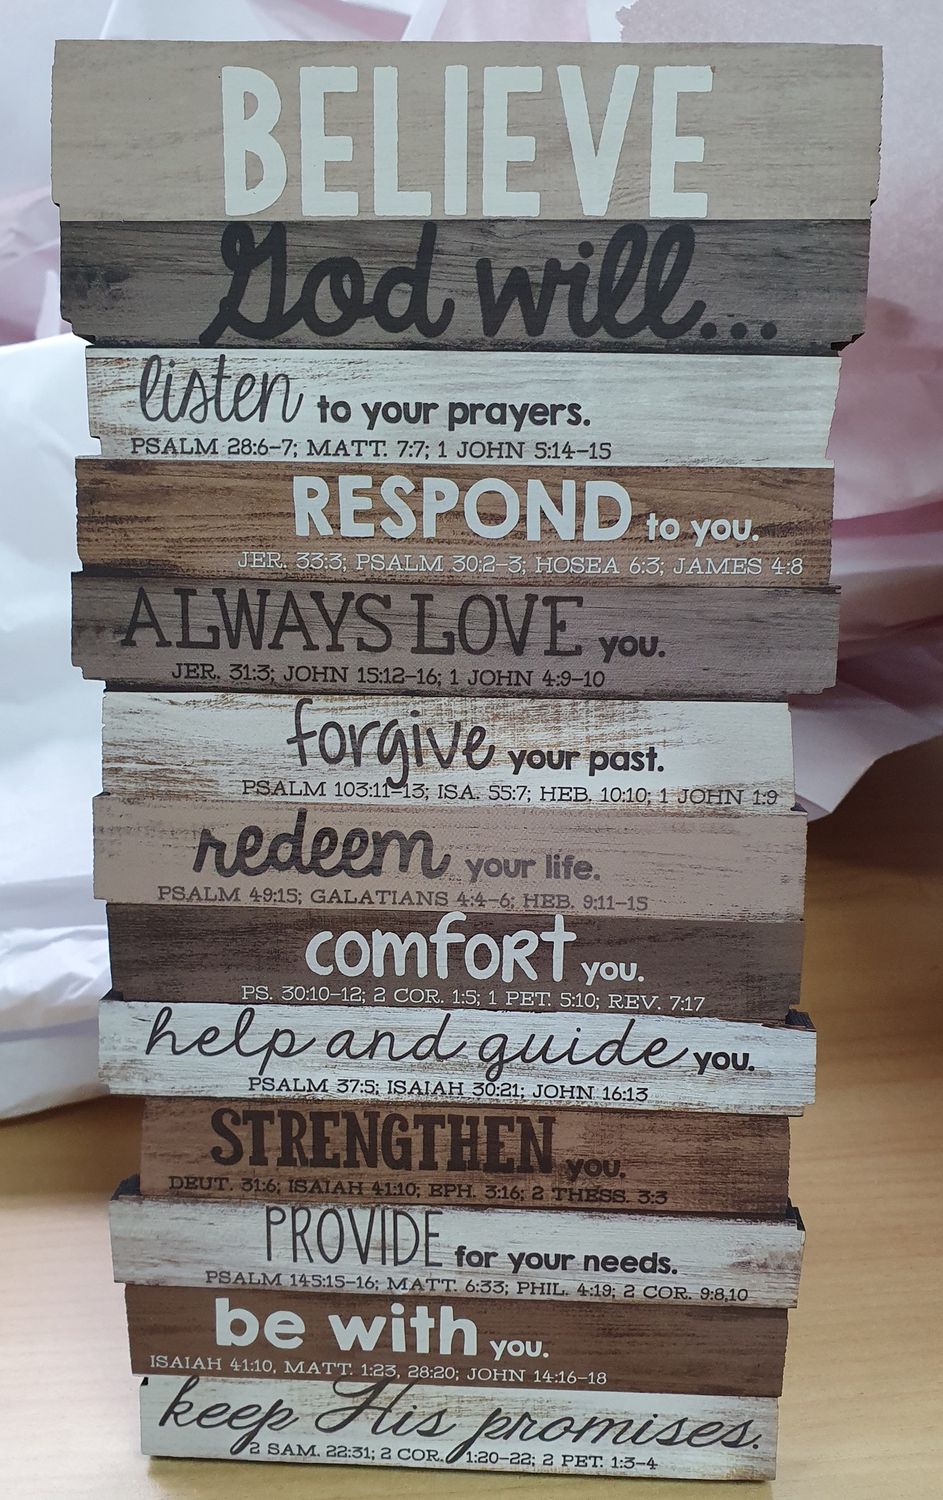 BELIEVE
God will...
listen to your prayers.
PSALM 28:6-7; MATT. 7:7; 1 JOHN 5:14-15
RESPOND to you.
JER. 33:3; PSALM 30:2-3; HOSEA 6:3; JAMES 4:8
ALWAYS LOVE you.
JER. 31:3; JOHN 15:12-16; 1 JOHN 4:9-10
forgive your past.
PSALM 103:11-13; ISA. 55:7; HEB. 10:10; 1 JOHN 1:9
redeem your life.
PSALM 49:15; GALATIANS 4:4-6; HEB. 9:11-15
comfort you.
PS. 30:10-12; 2 COR. 1:5; 1 PET. 5:10; REV. 7:17
help and guide you.
PSALM 37:5; ISAIAH 30:21; JOHN 16:13
STRENGTHEN you.
DEUT. 31:6; ISAIAH 41:10; EPH. 3:16; 2 THESS. 3:3
PROVIDE for your needs.
PSALM 145:15-16; MATT. 6:33; PHIL. 4:19; 2 COR. 9:8,10
be with you.
ISAIAH 41:10, MATT. 1:23, 28:20; JOHN 14:16-18
keep His promises.
2 SAM. 22:31; 2 COR. 1:20-22; 2 PET. 1:3-4